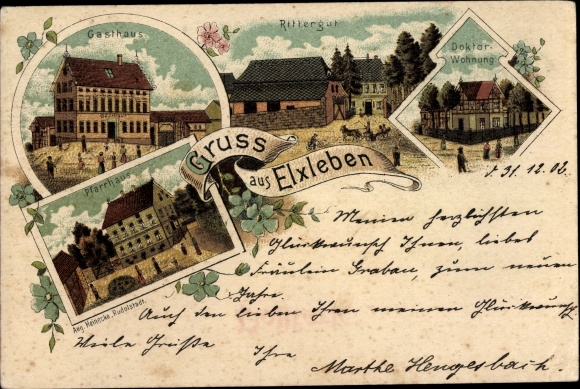 Gasthaus
Rittergut
Doktor-
Wohnung
Pfarrhaus
Gruss
aus Elxleben
Aug. Heinecke, Rudolstadt.
d. 31.12.02.
Meinen herzlichsten
Glückwunsch Ihnen, liebes
Fräulein Grabau, zum neuen
Jahre.
Auch den lieben Ihren meinen Glückwunsch.
Viele Grüße Ihre
Marthe Hengesbach.